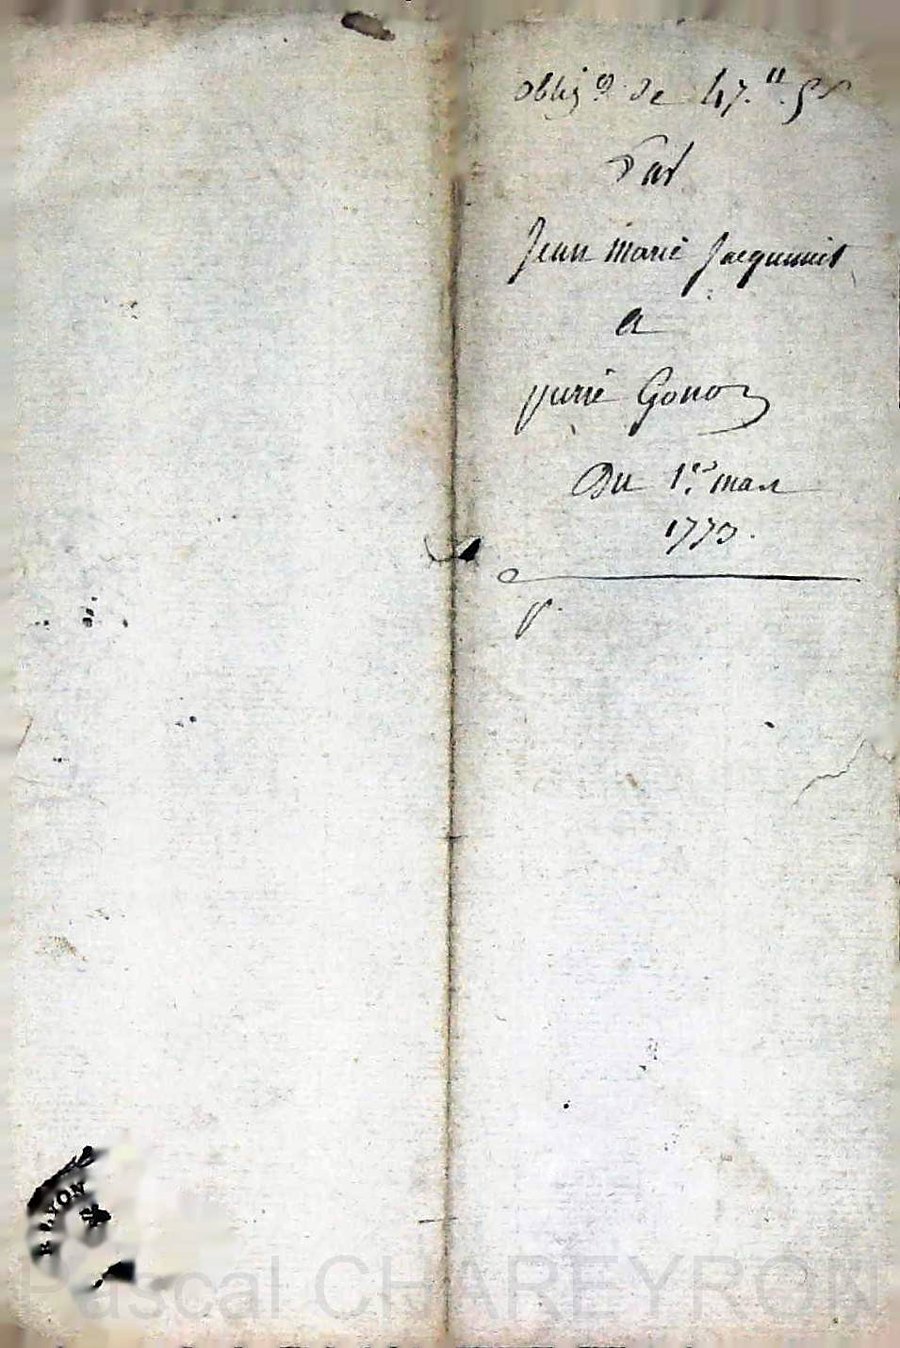 oblig.on de 47.tt 5 s
Par
Jean Marie Jacquemet
A
pierre Gonon
Du 1.er mars
1773.
p.
LYON
Pascal CHAREYRON